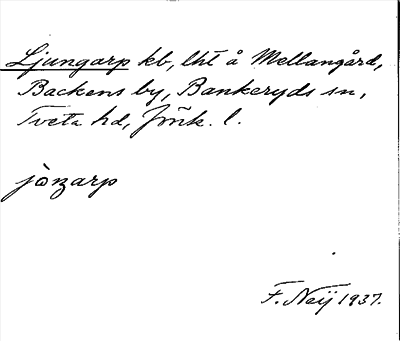 Ljungarp kb, lht å Mellangård,
Backens by, Bankeryds sn,
Tveta hd, Jönk. l.
jòŋarp
F. Neij 1937.